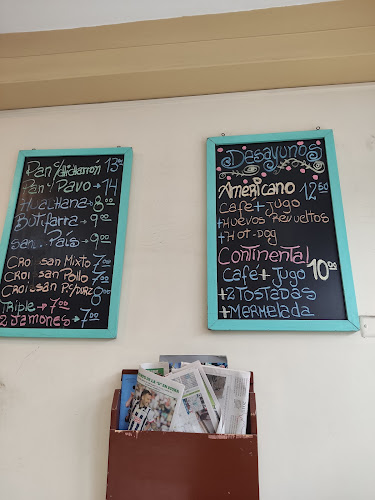 Pan c/chicharrón 13.00
Pan c/ Pavo → 14
Huachana → 8.00
Butifarra → 9.00
San.. País → 9.00
Croi..san Mixto 7.00
Croi..san Pollo 7.00
Croi..san P.c/Durz 8.00
Triple → 7.00
2 Jamones → 7.00
Desayunos
Americano 12.50
Café + Jugo
+Huevos Revueltos
+Hot-Dog
Continental
Café + Jugo 10.00
+2 Tostadas
+Mermelada